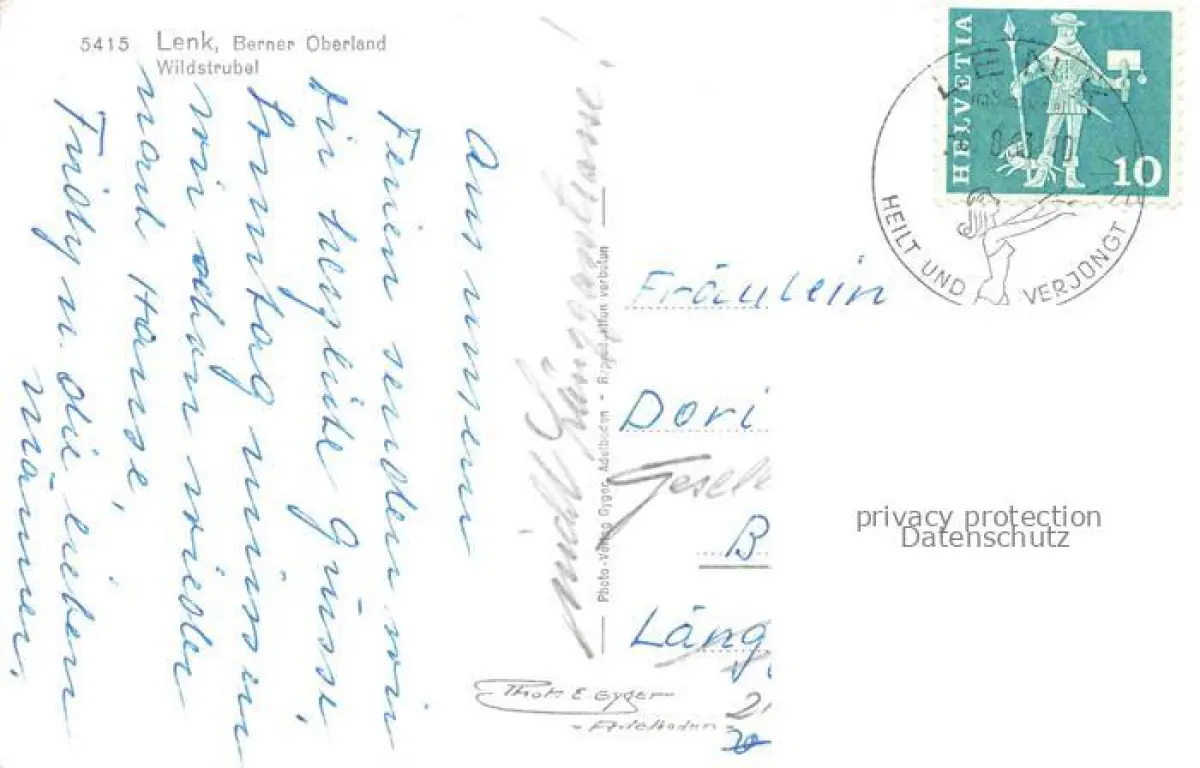 5415 Lenk, Berner Oberland
Wildstrubel
Aus unseren
Ferien senden wir
dir herzliche Grüsse,
Sonntag müssen
wir schon wieder
nach Hause,
Fridy u. die lieben
Männer.
nicht Länggasstrasse!
Photo-Verlag Gyger, Adelboden - Reproduktion verboten
Photo E Gyger
- Adelboden -
HELVETIA
10
LENK
HEILT UND VERJÜNGT
Fräulein
Dori
B
Läng
privacy protection
Datenschutz